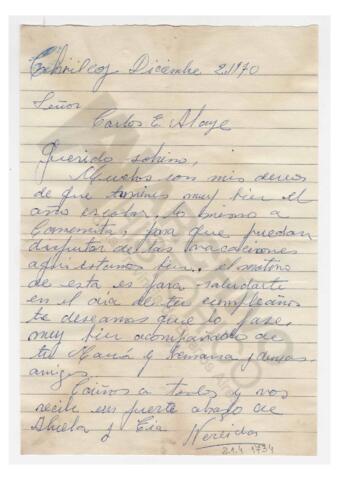 Diciembre 2.1970
Señor
Carlos E. Alaye
Querido sobrino,
Muchos son mis deseos
de que termines muy bien el
ano escolar. lo mismo a
para que puedan
disfrutar de las vacaciones
aqui estamos bien. el motivo
de esta es para saludarte
en el dia de tu cumpleaños
te deseamos que lo pase,
muy bien acompañado de
tu Mamá y Hermana y
amigos
Cariños a todos y vos
recibe un fuerte abrazo de
Abuela y Tia Nereida
21.4 1734